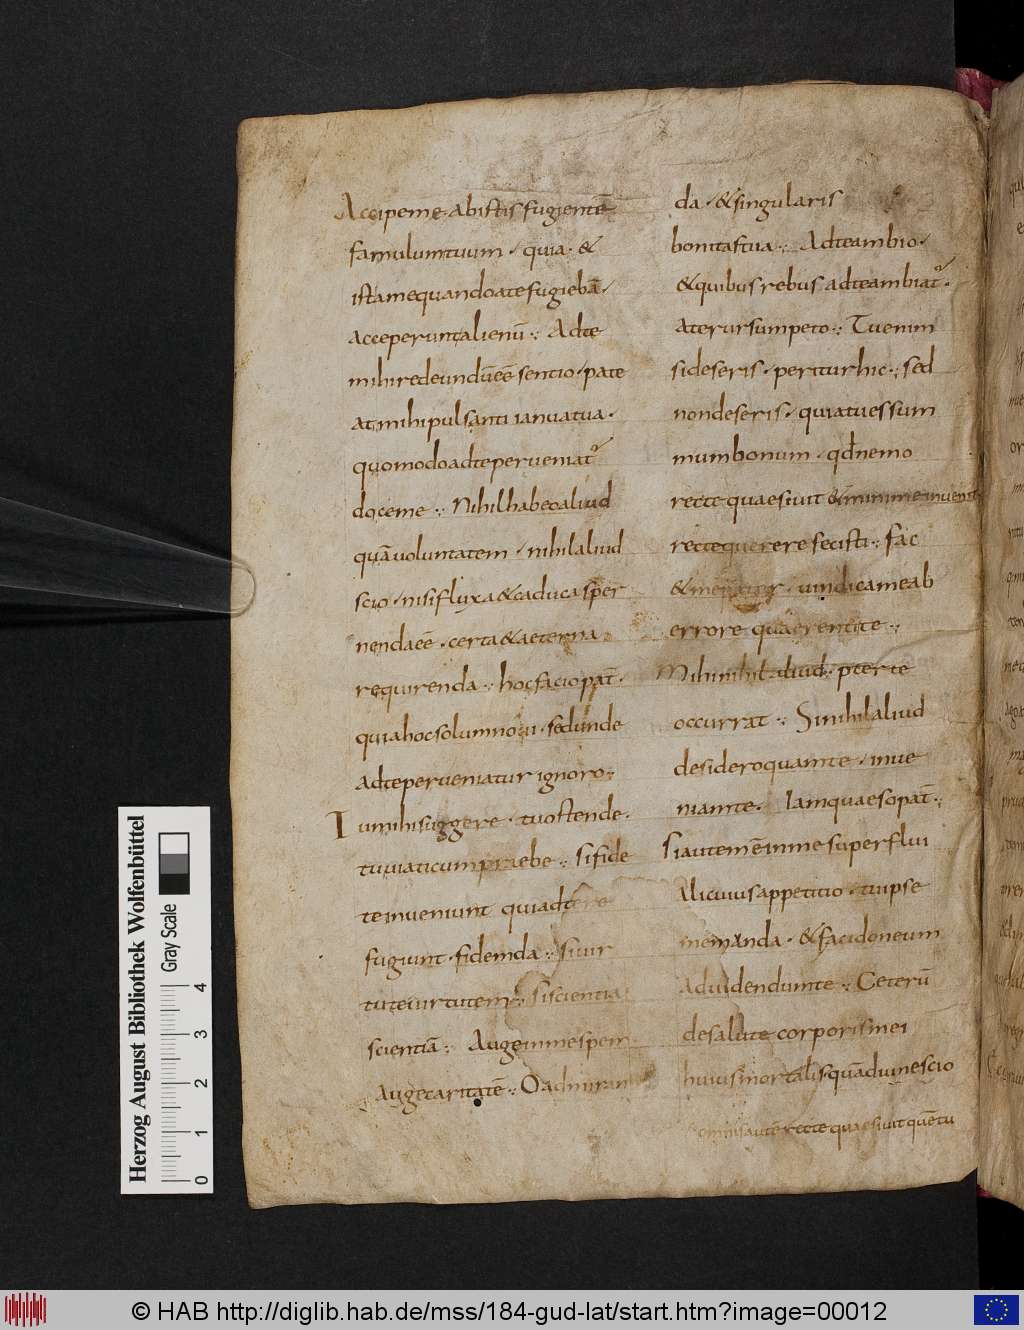 Accipeme abistis fugientē
famulumtuum · quia · &
istamequandoatefugiebā ·
acceperuntalienū :· Adte
mihiredeundūēē sentio · pate
atmihipulsanti ianuatua ·
quomodoadteperueniat᷑
doceme :· Nihilhabeoaliud
quāuoluntatem · nihilaliud
scio · nisifluxa&caduca sper
nendaēē · certa&aeterna
requirenda :· hocfaciopat̄ ·
quiahocsolumnoui · sedunde
adteperueniatur ignoro :·
Tumihisuggere · tuostende ·
tuuiaticumpraebe :· Sifide
teinueniunt quiadte
fugiunt · fidemda :· Siuir
tuteuirtutem :· Siscientia
scientiā :· Augeinmespem
Augecaritatē :· Oadmiran
da · &singularis
bonitastua :· Adteambio ·
&quibusrebus adteambiat᷑ ·
aterursumpeto :· Tuenim
sideseris · periturhic :· sed
nondeseris · quiatuessum
mumbonum · qđnemo
rectequaesiuit &minimeinuenit
rectequerere fecisti :· fac
uindicameab
errore quaerentite :·
Mihinihil aliud · pterte
occurrat :· Sinihilaliud
desideroquamte · inue
niamte · Iamquaesopat̄ :·
Siautemēinmesuperflui
Alicuiusappetitio · tuipse
memunda · &facidoneum
Aduidendumte :· Ceterū
desalute corporismei
huiusmortalisquadiunescio
omnisautērectequaesiuitquētu
Herzog August Bibliothek Wolfenbüttel
Gray Scale
0 1 2 3 4
© HAB http://diglib.hab.de/mss/184-gud-lat/start.htm?image=00012